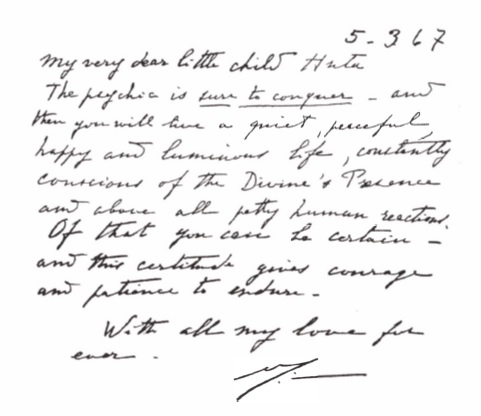 5-3 67
My very dear little child Huta
The psychic is sure to conquer - and
then you will live a quiet, peaceful,
happy and luminous life, constantly
conscious of the Divine's Presence
and above all petty human reactions.
Of that you can be certain -
and this certitude gives courage
and patience to endure.
With all my love for
ever.